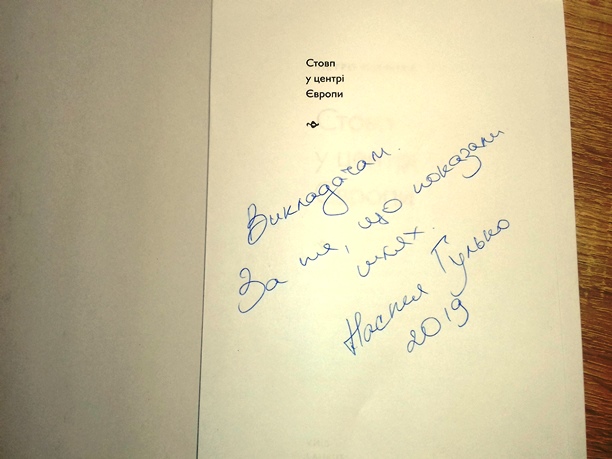 Стовп
у центрі
Європи
Викладачам.
За те, що показали
шлях.
Настя Гулько
2019